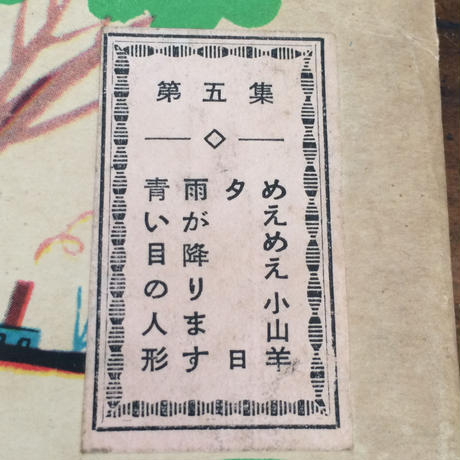 第五集
めえめえ小山羊
夕日
雨が降ります
青い目の人形